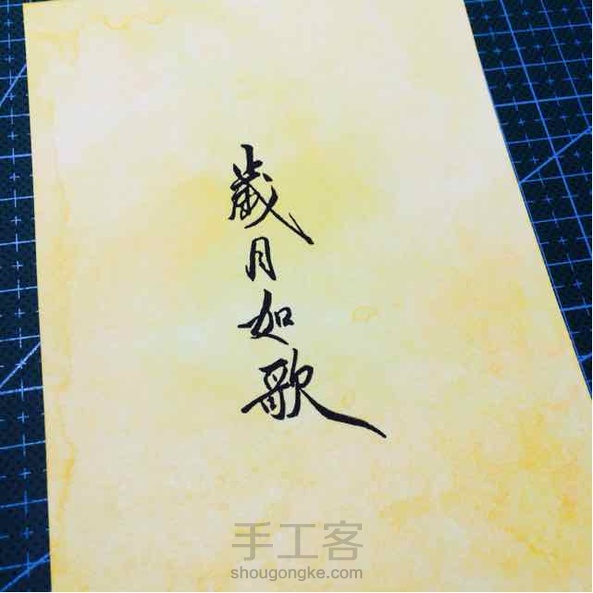 歲月如歌
手工客
shougongke.com